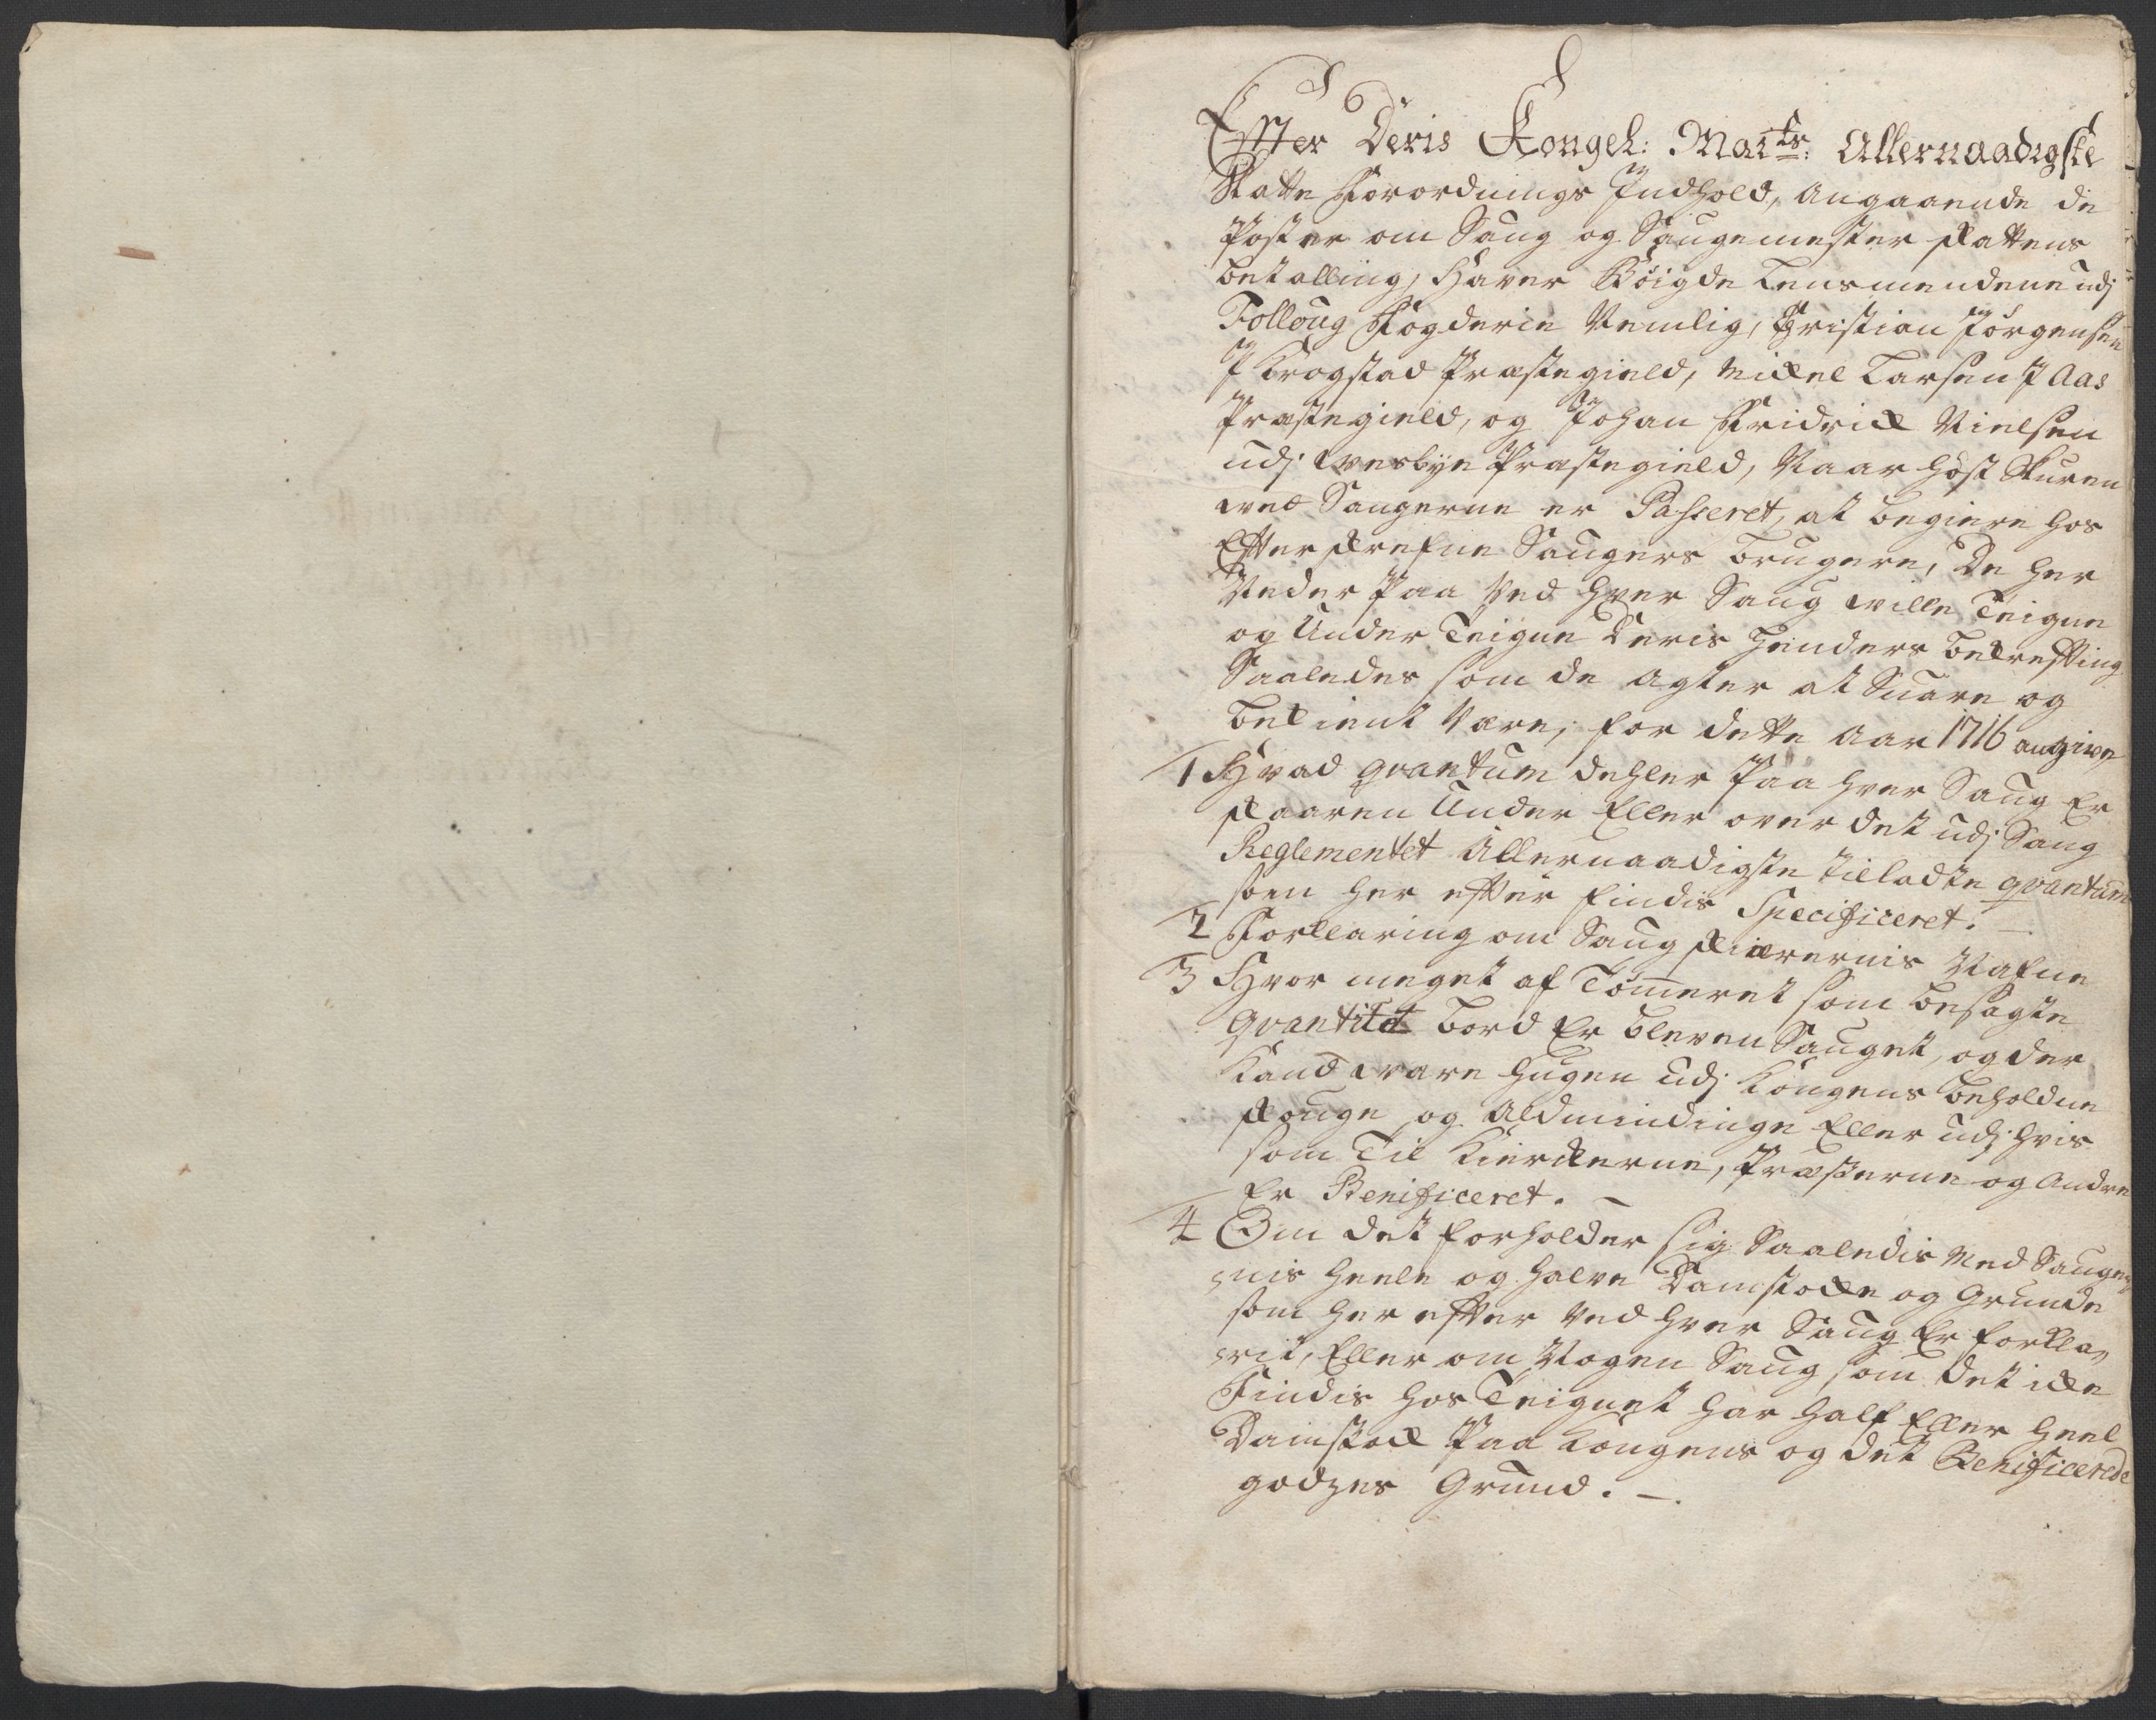 Effter Deris Kongel: Maits: Allernaadigste
Skatte Forordnings Indhold, angaaende de
Poster om Saug og Saugemester skattens
betalling, Haver Böigde Lensmendene udj
Folloug Fogderie Nemlig, Christian Jörgensen
J Krogstad Præstegield, Mickel Larsen J Aas
Præstegield, og Johan Fridrick Nielsen
udj Wesbye Præstegield, Naar höst Skuren
wed Saugerne er Passeret, at begiere hos
Effterskrefne Saugers brugere, De her
Neder Paa Ved hver Saug wille Teigne
og Under Teigne Deris henders bekreffting
Saaledes som de agter at Suare og
bekient Være, for dette Aar 1716 angive
1 Hvad qvantum dehler Paa hver Saug Er
skaaren Under Eller over det udj Saug
Reglementet Allernaadigste tilladte qvantum
som her effter findis Specificeret. –
2 Forklaring om Saug skiærernis Nafne
3 Hvor meget af Tömmeret som besagte
qvantitet bord Er bleven Sauget, og der
Kand være hugen udj Kongens beholdne
skouge og Aldmindinge Eller udj hvis
som Til Kirckerne, Præsterne og Andre
Er Benificeret. –
4 Om det forholder sig Saaledis Med Sauger
nis heele og halve Damstocke og Grunde
som her effter Ved hver Saug Er forkla,
rit, Eller om Nogen Saug som det icke
Findis hos Teignet har half Eller heel
Damstock Paa Kongens og det Benificerede
godzes Grund. –